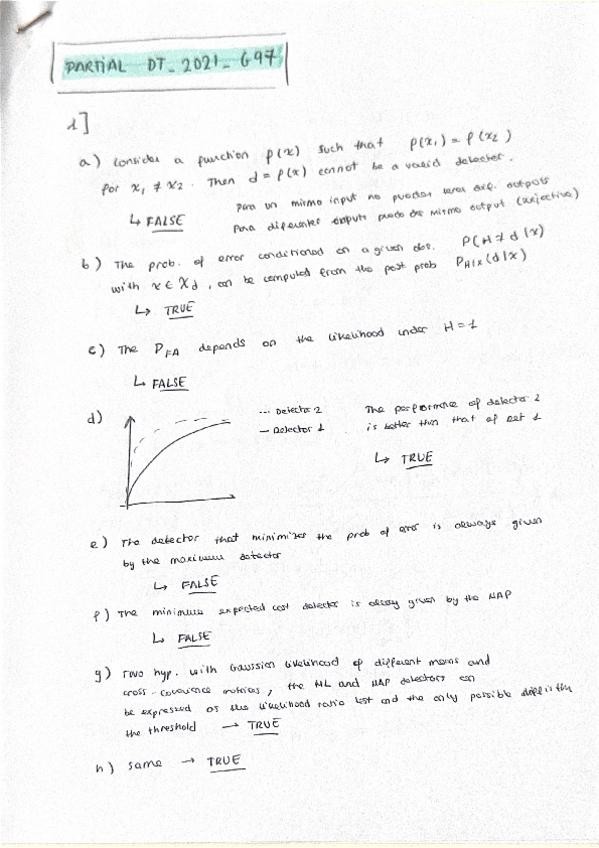 PARTIAL DT_2021_G97
1]
a) Consider a function f(x) such that f(x₁) = f(x₂)
for x₁ ≠ x₂. Then d = f(x) cannot be a valid detector.
Para un mismo input no puedes tener dif. outputs
↳ FALSE
Para diferentes inputs puedo mismo output (surjective)
b) The prob. of error conditioned on a given obs. P(H ≠ d|x)
with x ∈ X_d, can be computed from the post prob P_H|X(d|x)
↳ TRUE
c) The P_FA depends on the likelihood under H = 1
↳ FALSE
d)
--- Detector 2
— Detector 1
The performance of detector 2
is better than that of det 1
↳ TRUE
e) The detector that minimizes the prob of error is always given
by the maximum detector
↳ FALSE
f) The minimum expected cost detector is given by the MAP
↳ FALSE
g) Two hyp. with Gaussian likelihood of different means and
cross-covariance matrices, the ML and MAP detectors can
be expressed as the likelihood ratio test and the only possible diff is thr
the threshold → TRUE
h) same → TRUE